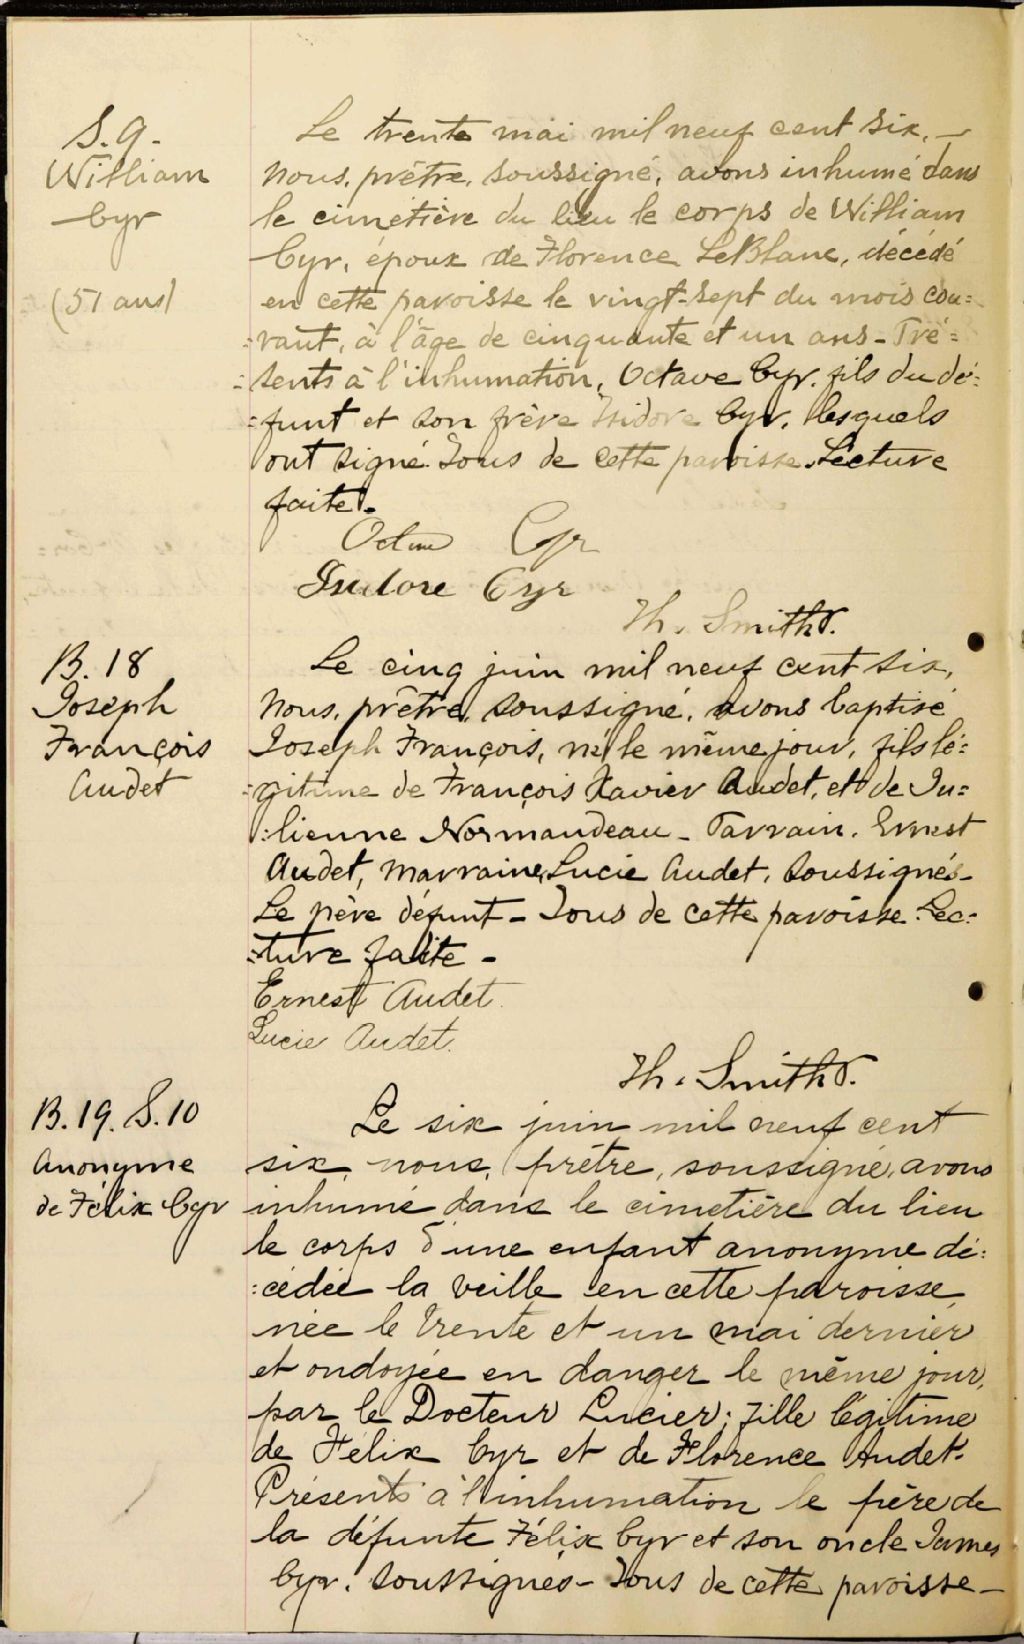 S. 9.
William
Cyr
(51 ans)
Le trente mai mil neuf cent six, —
nous, prêtre, soussigné, avons inhumé dans
le cimetière du lieu le corps de William
Cyr, époux de Florence LeBlanc, décédé
en cette paroisse le vingt-sept du mois cou=
=rant, à l'âge de cinquante et un ans - Pré=
=sents à l'inhumation, Octave Cyr, fils du dé=
=funt et son frère Isidore Cyr, lesquels
ont signé. Tous de cette paroisse. Lecture
faite.
Octave Cyr
Isidore Cyr
Th. Smith P.
B. 18
Joseph
François
Audet
Le cinq juin mil neuf cent six,
nous, prêtre, soussigné, avons baptisé
Joseph François, né le même jour, fils lé=
=gitime de François Xavier Audet, et de Ju=
=lienne Normandeau - Parrain, Ernest
Audet, marraine, Lucie Audet, soussignés -
Le père défunt - Tous de cette paroisse. Lec=
=ture faite -
Ernest Audet
Lucie Audet.
Th. Smith P.
B. 19. S. 10
Anonyme
de Félix Cyr
Le six juin mil neuf cent
six, nous, prêtre, soussigné, avons
inhumé dans le cimetière du lieu
le corps d'une enfant anonyme dé=
=cédée la veille en cette paroisse,
née le trente et un mai dernier
et ondoyée en danger le même jour,
par le Docteur Lucier; fille légitime
de Félix Cyr et de Florence Audet.
Présents à l'inhumation le père de
la défunte Félix Cyr et son oncle James
Cyr, soussignés - Tous de cette paroisse -